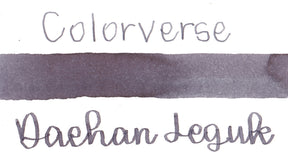 Colorverse
Daehan Jeguk